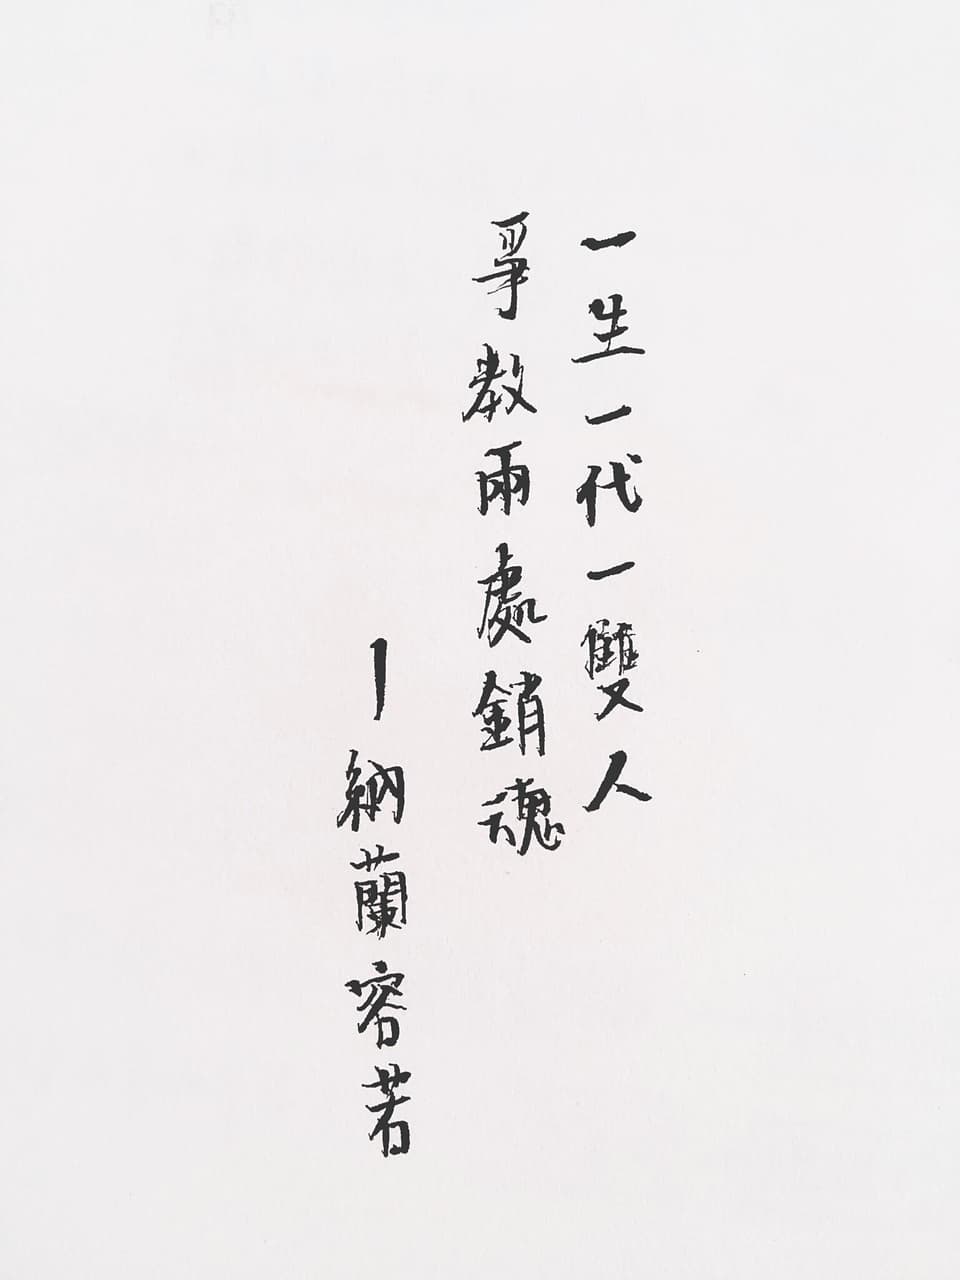 一生一代一雙人
爭教兩處銷魂
—納蘭容若